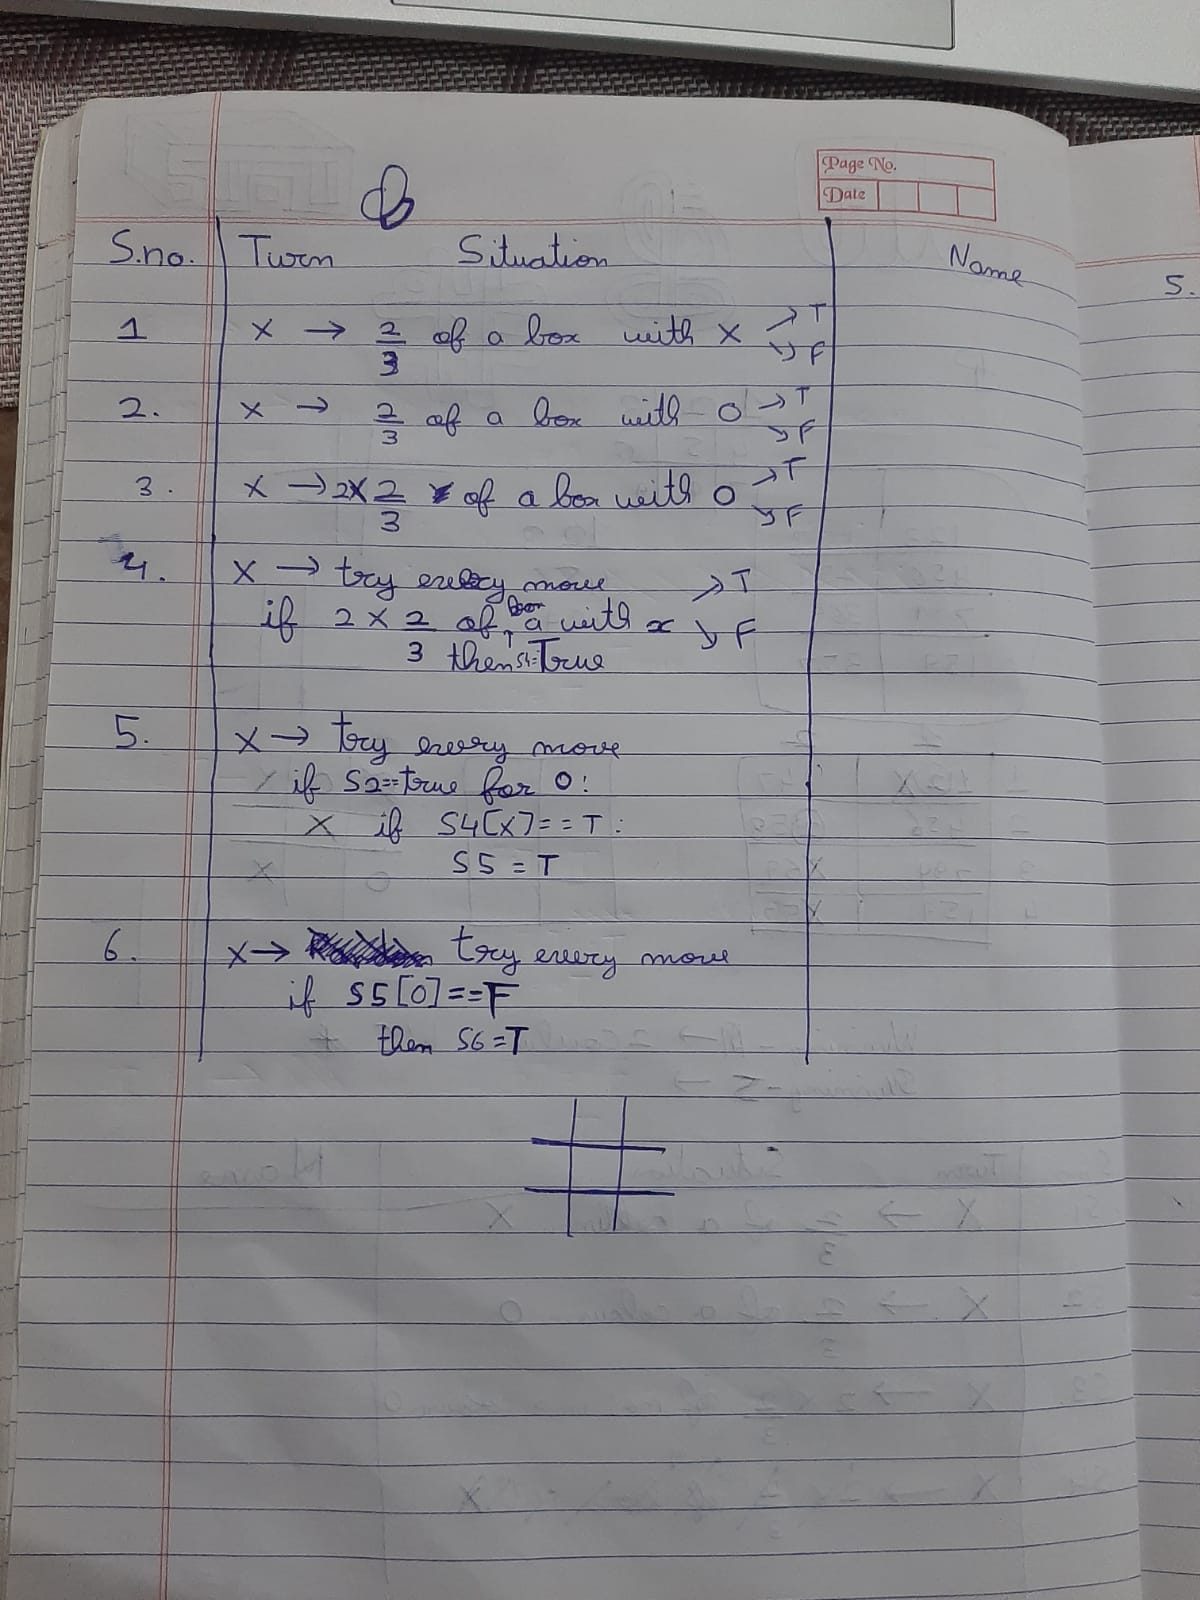 Page No.
Date
S.no. Turn Situation Name
S.
1 x → 2/3 of a box with x → T
↘ F
2. x → 2/3 of a box with O → T
↘ F
3. x → 2x 2/3 of a box with O → T
↘ F
4. x → try every move → T
if 2 x 2/3 of a box with x ↘ F
then S4=True
5. x → Try every move
if S2==true for O:
x if S4[x]==T:
S5 = T
6. x → try every move
if S5[O]==F
then S6=T